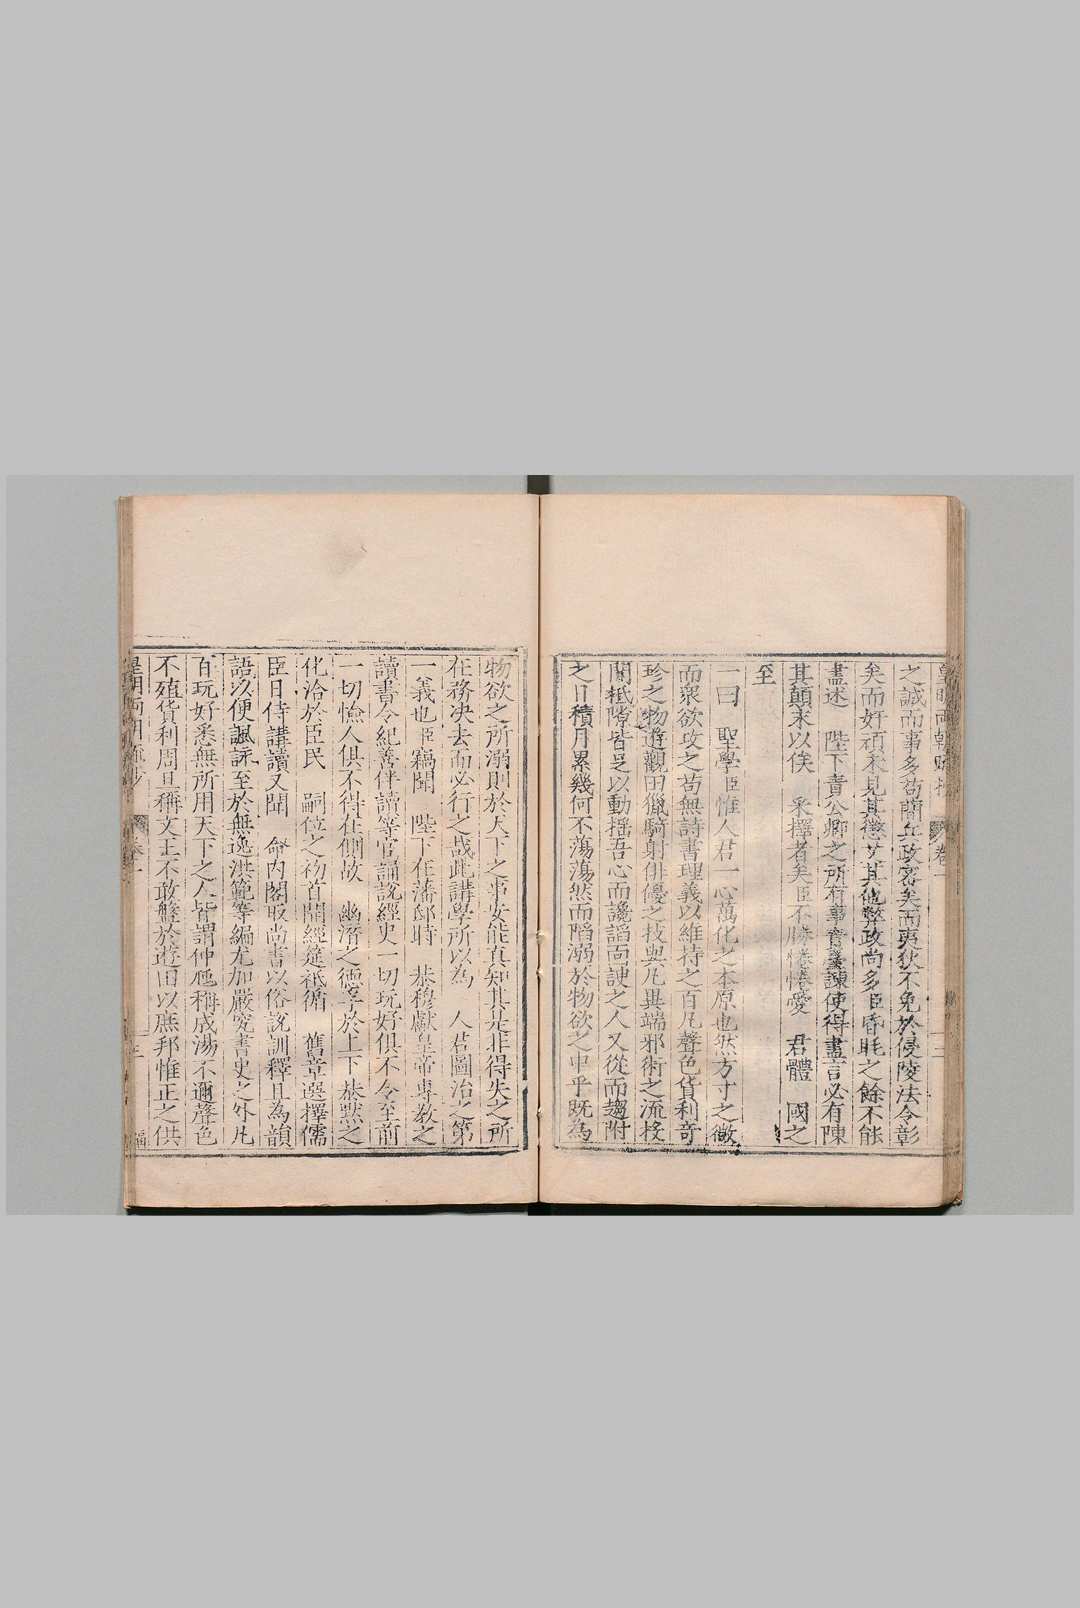 皇明兩朝疏抄 卷一 三
之誠而事多苟簡兵政宻矣而夷狄不免於侵陵法令彰
矣而奸頑未見其懲艾其他弊政尚多臣昏眊之餘不能
盡述 陛下責公卿之所有事責臺諫使得盡言必有陳
其顛末以俟 采擇者矣臣不勝惓惓愛 君體 國之
至
一曰 聖學臣惟人君一心萬化之本原也然方寸之微
而衆欲攻之苟無詩書理義以維持之百凡聲色貨利奇
珍之物遊觀田獵騎射俳優之技與凡異端邪術之流投
間抵隙皆足以動揺吾心而讒謟面諛之人又從而趨附
之日積月累幾何不蕩蕩然而陷溺於物欲之中乎既為
物欲之所溺則於天下之事安能真知其是非得失之所
在務决去而必行之哉此講學所以為 人君圖治之第
一義也臣竊聞 陛下在藩邸時 恭穆獻皇帝専教之
讀書令紀善伴讀等官誦說經史一切玩好俱不令至前
一切憸人俱不得在側故 幽濳之德孚於上下恭黙之
化洽於臣民 嗣位之初首開經筵祗循 舊章選擇儒
臣日侍講讀又聞 命内閣取尚書以俗說訓釋且為韻
語以便諷詠至於無逸洪範等編尤加嚴究書史之外凡
百玩好悉無所用天下之人皆謂仲虺稱成湯不邇聲色
不殖貨利周旦稱文王不敢盤於遊田以庶邦惟正之供
皇明兩朝疏抄 卷一 三 福